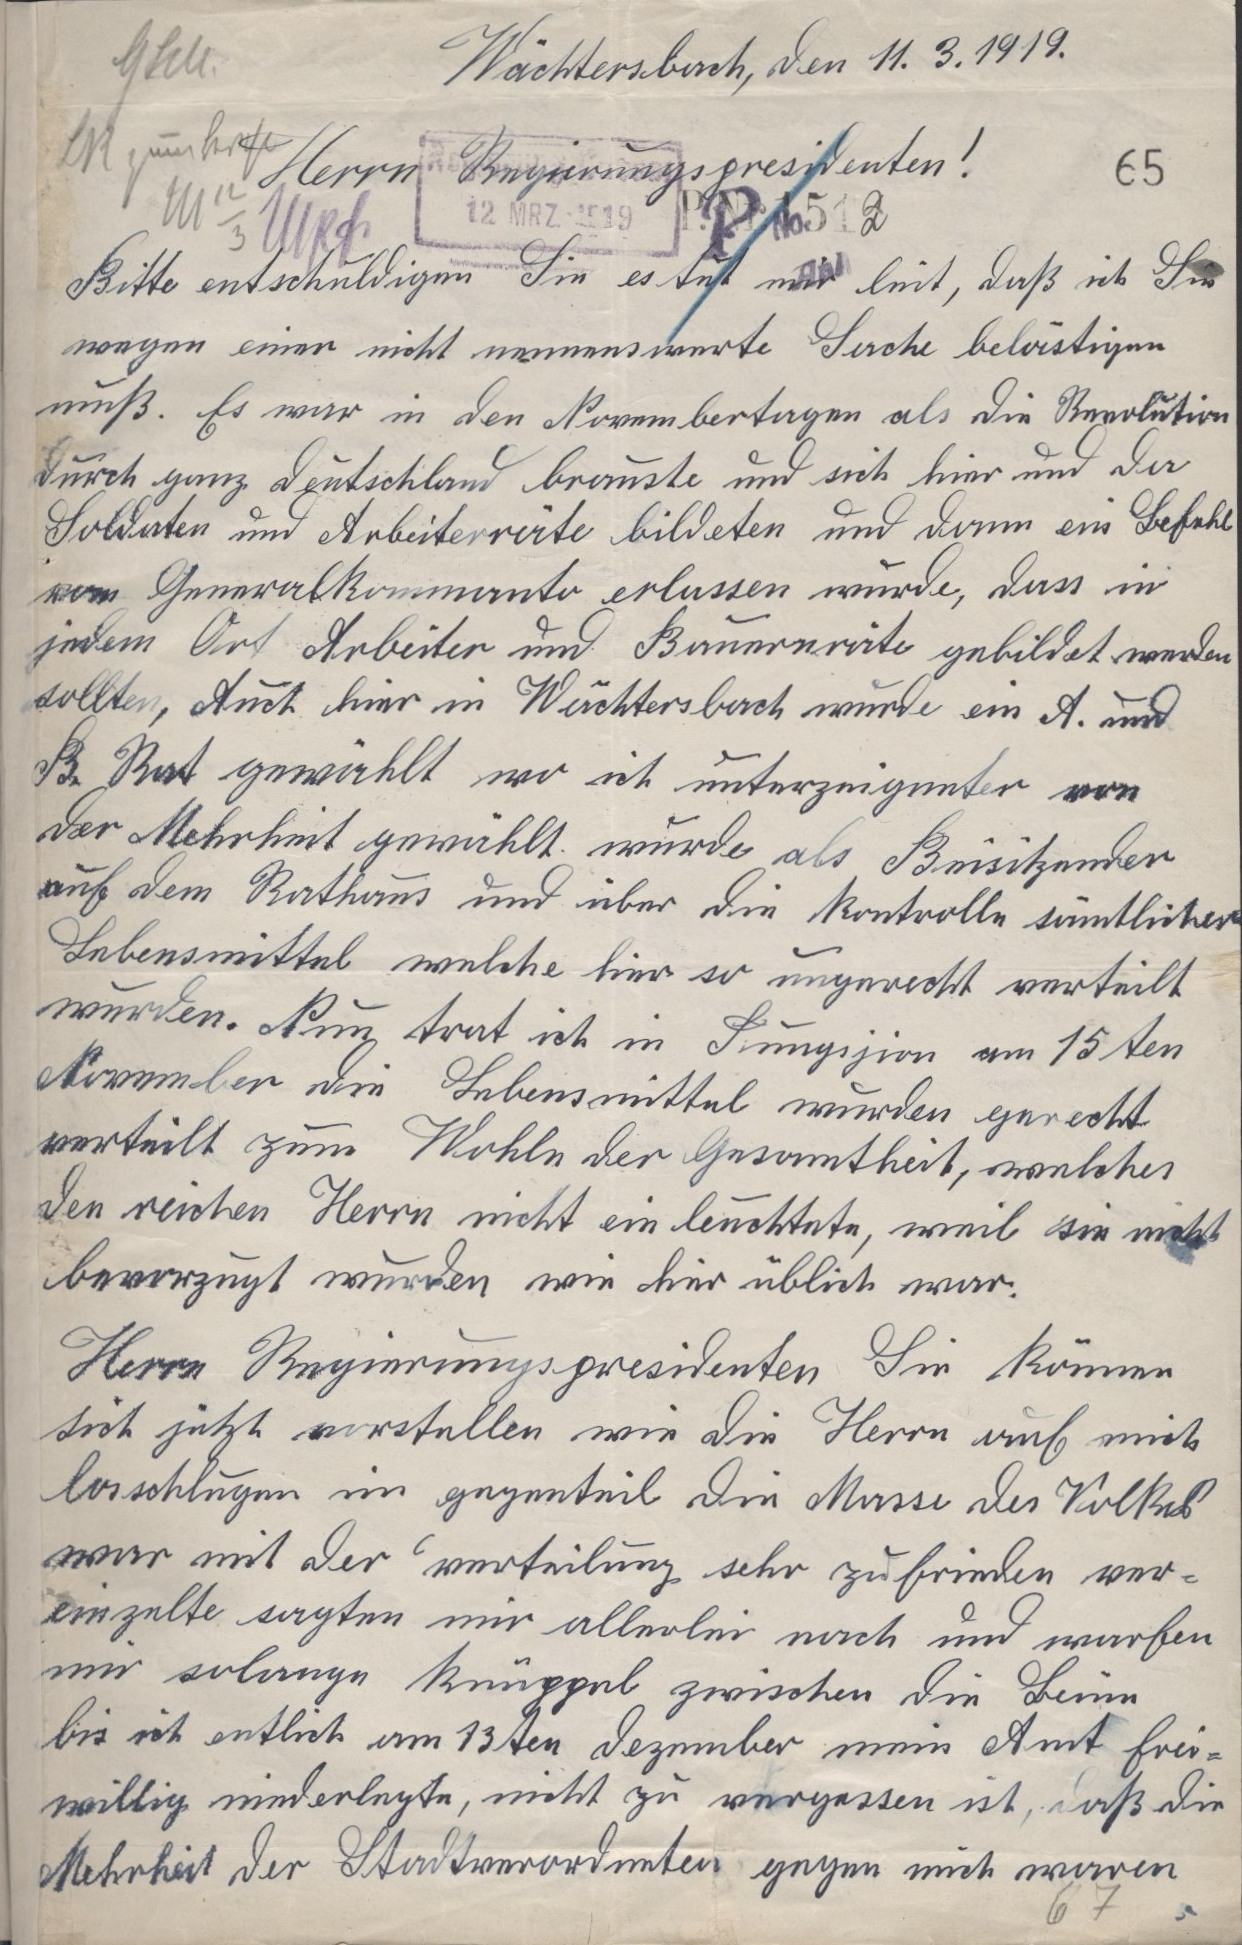 Wächtersbach, den 11. 3. 1919.
Herrn Regierungspresidenten!
65
12 MRZ. 1919
P. Nr. 1512
Bitte entschuldigen Sie es tut mir leit, daß ich Sie
wegen einer nicht nennenswerte Sache belästigen
muß. Es war in den Novembertagen als die Revolution
durch ganz Deutschland brauste und sich hier und da
Soldaten und Arbeiterräte bildeten und dann ein Befehl
vom Generalkommanto erlassen wurde, dass in
jedem Ort Arbeiter und Bauernräte gebildet werden
sollten, Auch hier in Wächtersbach wurde ein A. und
B. Rat gewählt wo ich unterzeigneter von
der Mehrheit gewählt wurde als Beisitzender
auf dem Rathaus und über die Kontrolle sämtlicher
Lebensmittel welche hier so ungerecht verteilt
wurden. Nun trat ich in Fungzion am 15ten
November die Lebensmittel wurden gerecht
verteilt zum Wohle der Gesamtheit, welches
den reichen Herrn nicht ein leuchtete, weil sie nicht
bevorzugt wurden wie hier üblich war.
Herrn Regierungspresidenten Sie können
sich jetzt vorstellen wie die Herrn auf mich
losschlugen im gegenteil die Masse des Volkes
war mit der verteilung sehr zufrieden ver=
einzelte sagten mir allerlei nach und warfen
mir solange Knüppel zwischen die Beine
bis ich entlich am 13ten Dezember mein Amt frei=
willig niederlegte, nicht zu vergessen ist, daß die
Mehrheit der Stadtverordneten gegen mich waren
67